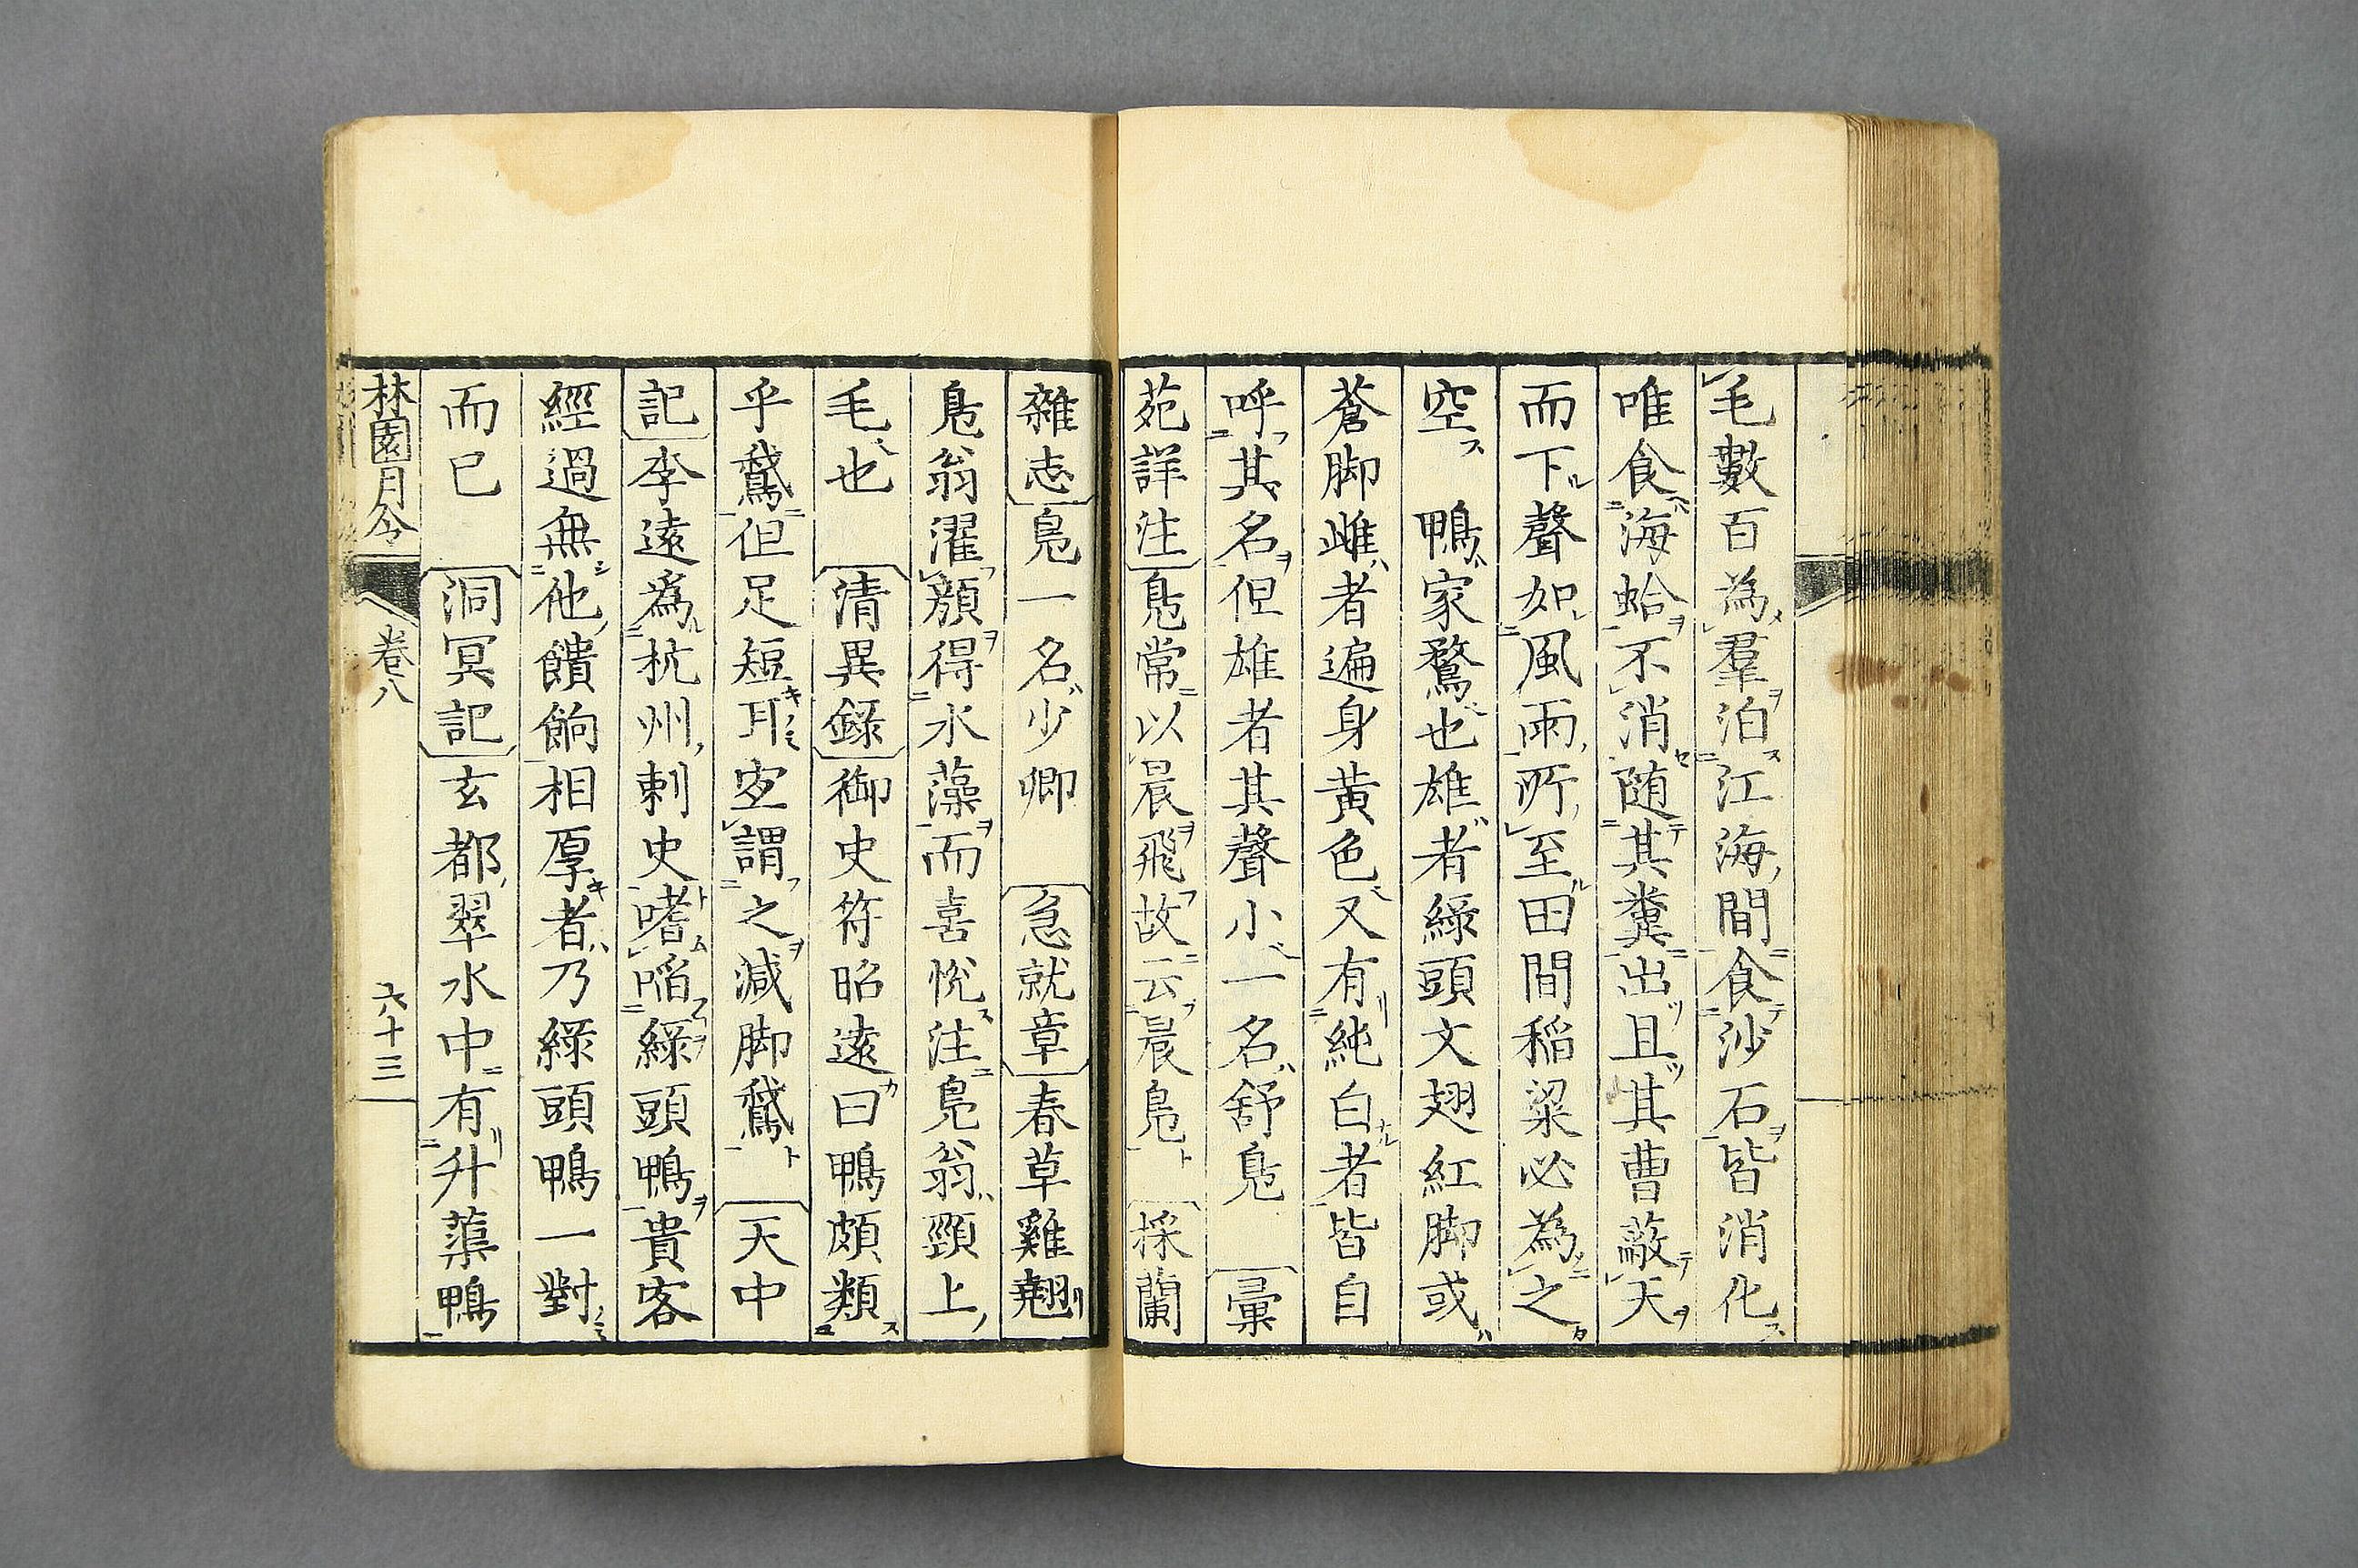 毛數百為羣泊江海間食沙石皆消化
唯食海蛤不消随其糞出且其曹蔽天
而下聲如風雨所至田間稲粱必為之
空　鴨家鶩也雄者綠頭文翅紅脚或
蒼脚雌者遍身黄色又有純白者皆自
呼其名但雄者其聲小一名舒鳬　彙
苑詳注鳬常以晨飛故云晨鳬　採蘭
雜志鳬一名少卿　急就章春草雞翹
鳬翁濯顏得水藻而喜悅注鳬翁頸上
毛也　清異録御史符昭遠曰鴨頗類
乎鵞但足短耳宜謂之減脚鵞　天中
記李遠為杭州刺史嗜啗綠頭鴨貴客
經過無他饋餉相厚者乃綠頭鴨一對
而已　洞冥記玄都翠水中有升蕖鴨
林園月令　卷八　六十三